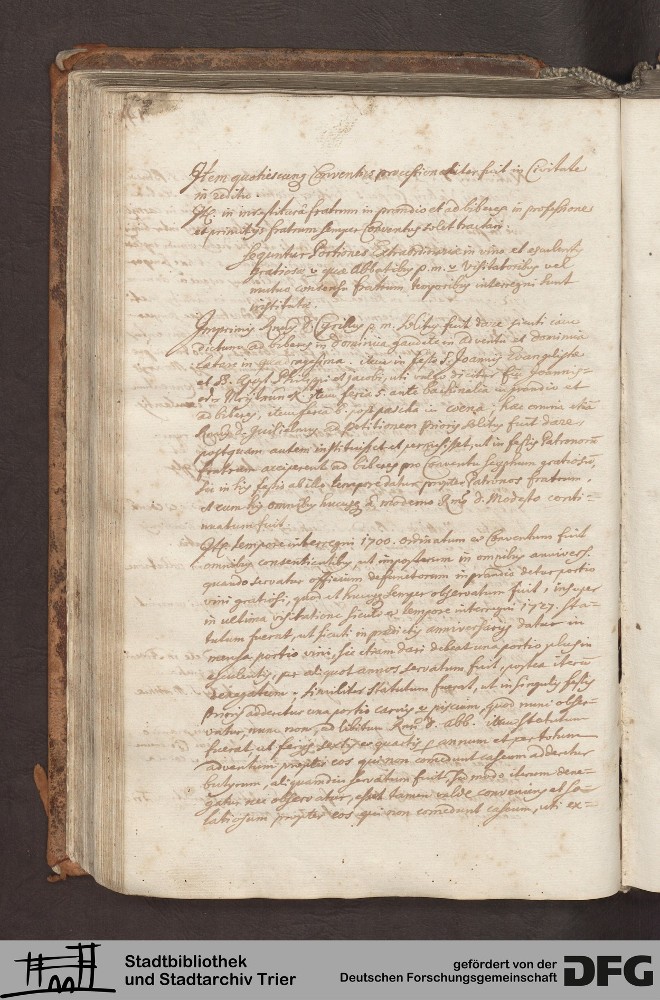 Item quotiescunq Conventus processionaliter fuit in Civitate
in reditu.
It. in investiturâ fratrum in prandio et ad biberes in professione
et primitijs fratrum semper Conventus solet tractari.
Sequuntur Portiones Extraordinariæ in vino et esculentis
gratiosæ, quæ Abbatibus p. m. et Visitatoribus vel
mutuo consensu fratrum temporibus interregni sunt
institutæ.
Imprimis Rmus D. Cyrillus p. m. solitus fuit dare sicuti iam
dictum ad biberes in dominica gaudete in adventu et dominica
Lætare in quadragesima. item in festo S. Joannis Evangelistæ
et SS. Apost. Philippi et Jacobi, uti
item feria 5. ante bachinalia in prandio et
ad biberes, item feria 6. post pascha in coena, hæc omnia etiam
Rmus D. Guilielmus ad petitionem Prioris solitus fuit dare,
postquam autem instituisset et permisisset, ut in festis Patronorum
fratrum acciperent ad biberes pro Conventu scyphum gratiosum,
sic in his festis ab illo tempore datur propter Patronos fratrum,
et cum his omnibus hucusq à moderno Rmo D. Modesto conti=
nuatum fuit.
It. tempore interregni 1700. ordinatum et Conventum fuit
omnibus consentientibus, ut in posterum in omnibus annivers.
quando servatur officium defunctorum in prandio detur portio
vini gratiosi, quod et hucusq semper observatum fuit, insuper
in ultima visitatione sicut et tempore interregni 1727. sta=
tutum fuerat, ut sicuti in prædictis anniversarijs datur in
mensa portio vini, sic etiam dari debeat una portio plus in
esculentis, per aliquot annos servatum fuit, postea iterum
denegatum. Similiter statutum fuerat, ut in singulis festis
Prioris adderetur una portio carnis et piscium, quod nunc obser=
vatur, nunc non, ad libitum Rmi D. Abb. item statutum
fuerat, ut ferijs sextis et quartis per annum et per totum
adventum propter eos qui non comedunt caseum adderetur
butyrum, aliquamdiu servatum fuit, sed modo iterum dene=
gatur nec observatur, esset tamen valde conveniens et so=
latiosum propter eos qui non comedunt caseum, uti ex=
Stadtbibliothek
und Stadtarchiv Trier
gefördert von der
Deutschen Forschungsgemeinschaft
DFG